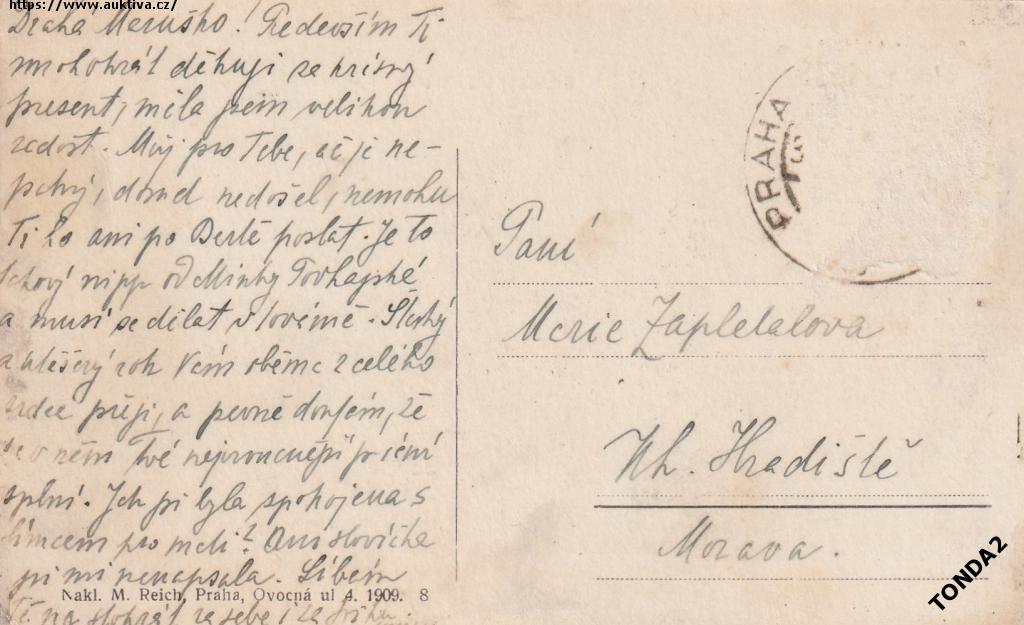 https://www.auktiva.cz/
Drahá Maruško! Předevsím Ti
mnohokrát děkuji za krásný
present, měla jsem velikou
radost. Můj pro Tebe, ač je ne-
patrný, dosud nedošel, nemohu
Ti ho ani po Bertě poslat. Je to
nipp od Minky
a musí se dělat v továrně. Šťastný
a utěšený rok Vám oběma z celého
srdce přeji, a pevně doufám, že
se v něm Tvé nejvroucnější přání
splní. Jak jsi byla spokojena s
límcem pro mati? Ani slovíčka
jsi mi nenapsala. Líbám
Tě na stokrát za sebe i za
Nakl. M. Reich, Praha, Ovocná ul 4. 1909. 8
PRAHA
Paní
Marie Zapletalova
Uh. Hradiště
Morava.
TONDA2